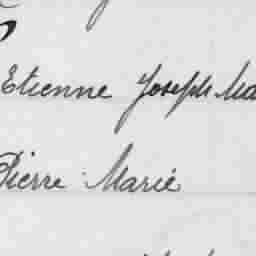 Etienne Joseph Ma
Pierre Marie